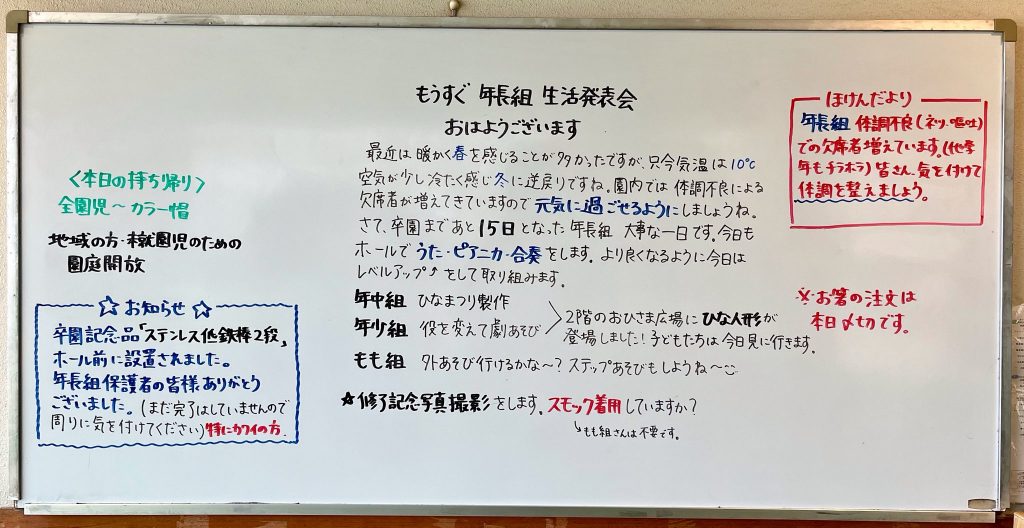 もうすぐ 年長組 生活発表会
おはようございます
最近は暖かく春を感じることが多かったですが、只今気温は10℃
空気が少し冷たく感じ冬に逆戻りですね。園内では体調不良による
欠席者が増えてきていますので元気に過ごせるようにしましょうね。
さて、卒園まであと15日となった年長組 大事な一日です。今日も
ホールでうた・ピアニカ・合奏をします。より良くなるように今日は
レベルアップ⤴をして取り組みます。
年中組 ひなまつり製作
年少組 役を変えて劇あそび
2階のおひさま広場にひな人形が
登場しました!子どもたちは今日見に行きます。
もも組 外あそび行けるかな～?ステップあそびもしようね～
☆修了記念写真撮影をします。スモック着用していますか?
↳もも組さんは不要です。
<本日の持ち帰り>
全園児～カラー帽
地域の方・未就園児のための
園庭開放
☆ お知らせ ☆
卒園記念品「ステンレス低鉄棒2段」
ホール前に設置されました。
年長組保護者の皆様ありがとう
ございました。(まだ完了はしていませんので
周りに気を付けてください)特にカワイの方.
ほけんだより
年長組 体調不良(ネツ・嘔吐)
での欠席者増えています。(他学
年もチラホラ)皆さん、気を付けて
体調を整えましょう。
※お箸の注文は
本日〆切です。